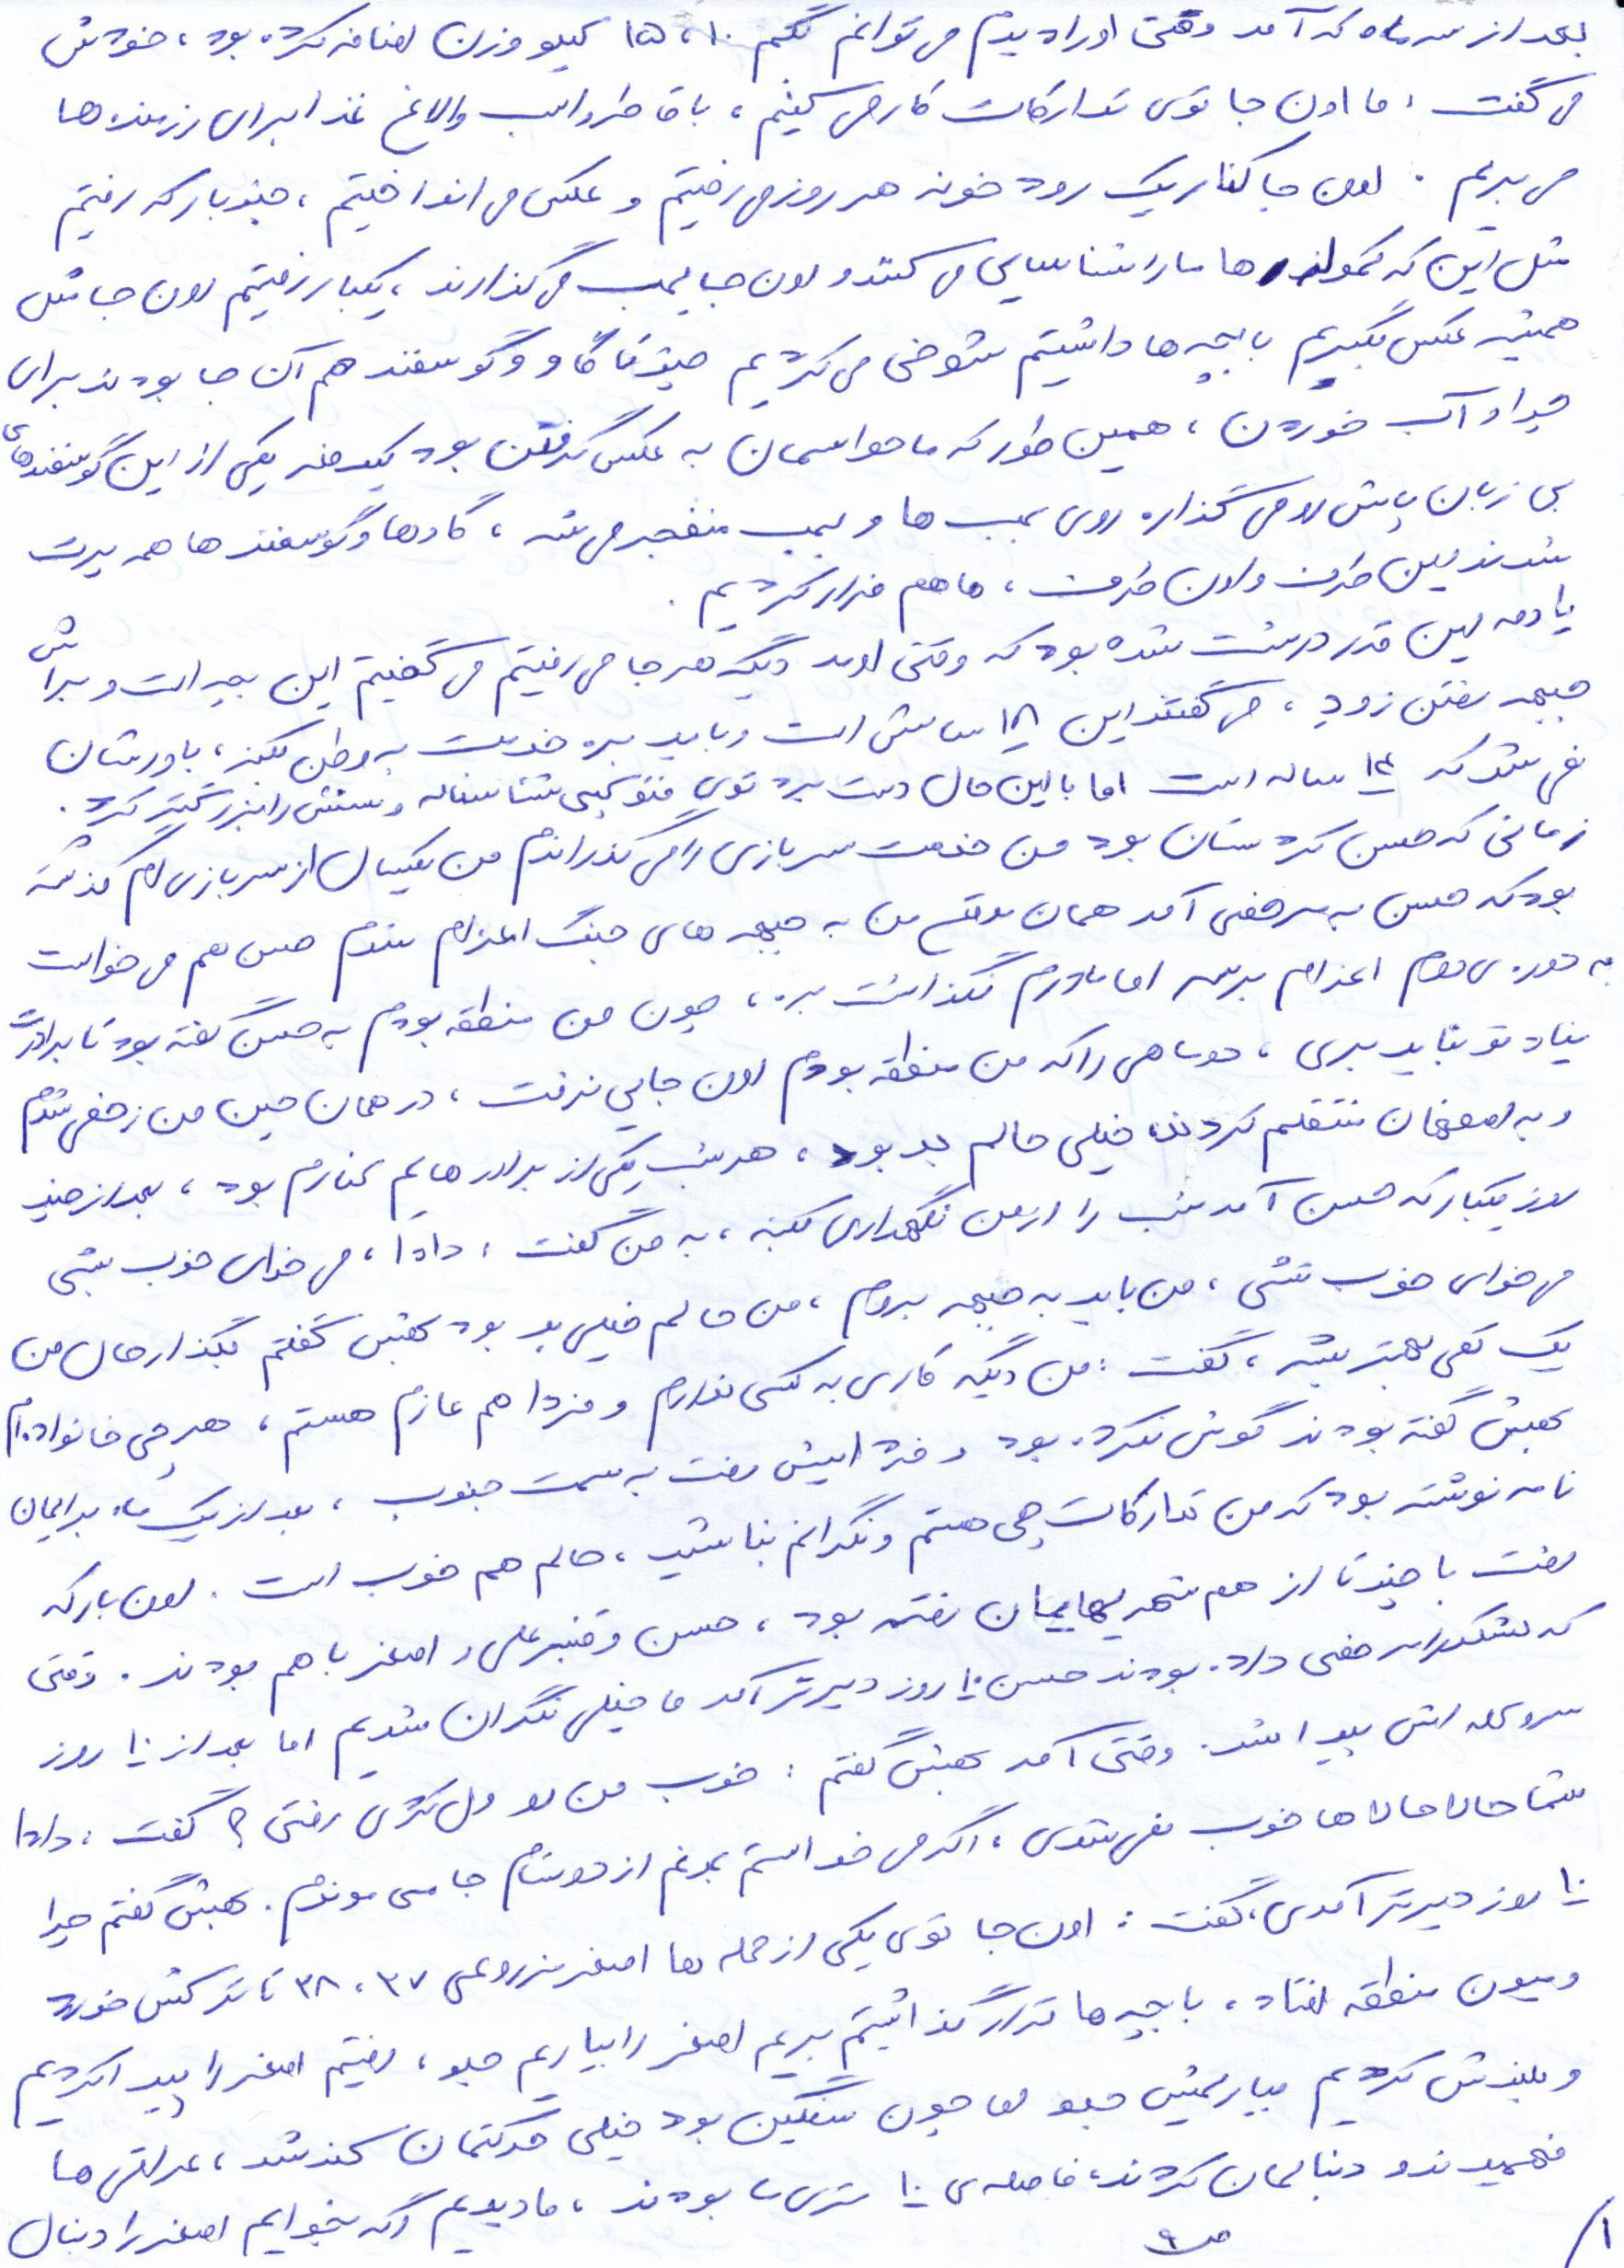 بعد از سه ماه که آمد وقتی او را دیدم می توانم بگم ۱۰، ۱۵ کیلو وزن اضافه کرده بود، خودش
می گفت: ما اون جا توی تدارکات کار می کنیم، با قاطر و اسب و الاغ غذا برای رزمنده ها
می بریم. اون جا کنار یک رود خونه هر روز می رفتیم و عکس می انداختیم، چند بار که رفتیم
مثل این که کموله ها ما را شناسایی می کنند و اون جا بمب می گذارند، یکبار رفتیم اون جا مثل
همیشه عکس بگیریم با بچه ها داشتیم شوخی می کردیم چند تا گاو و گوسفند هم آن جا بودند برای
چرا و آب خوردن، همین طور که ما حواسمان به عکس گرفتن بود یکدفعه یکی از این گوسفندهای
بی زبان پاش رو می گذاره روی بمب ها و بمب منفجر می شه، گاوها و گوسفندها همه پرت
شدند این طرف و اون طرف، ما هم فرار کردیم.
یادمه این قدر درشت شده بود که وقتی اومد دیگه هر جا می رفتیم می گفتیم این بچه است و براش
جبهه رفتن زود، می گفتند این ۱۸ سالش است و باید بره خدمت به وطن بکنه، باورشان
نمی شد که ۱۴ ساله است اما با این حال دست برد توی فتوکپی شناسنامه و سنش را بزرگتر کرد.
زمانی که حسن کردستان بود من خدمت سربازی را می گذراندم من یکسال از سربازی ام گذشته
بود که حسن به مرخصی آمد همان موقع من به جبهه های جنگ اعزام شدم حسن هم می خواست
به دوره ی دوم اعزام برسه اما مادرم نگذاشت بره، چون من منطقه بودم به حسن گفته بود تا برادرت
نیاد تو نباید بری، دو ماهی را که من منطقه بودم اون جایی نرفت، در همان حین من زخمی شدم
و به اصفهان منتقلم کردند، خیلی حالم بد بود، هر شب یکی از برادرهایم کنارم بود، بعد از چند
روز یکبار که حسن آمد شب را از من نگهداری بکنه، به من گفت: دادا، می خوای خوب بشی
می خوای خوب نشی، من باید به جبهه بروم، من حالم خیلی بد بود بهش گفتم بگذار حال من
یک کمی بهتر بشه، گفت: من دیگه کاری به کسی ندارم و فردا هم عازم هستم، هر چی خانواده ام
بهش گفته بودند گوش نکرده بود و فرداییش رفت به سمت جنوب، بعد از یک ماه برایمان
نامه نوشته بود که من تدارکات چی هستم و نگرانم نباشید، حالم هم خوب است. اون بار که
رفت با چند تا از هم شهریهایمان رفته بود، حسن و قنبرعلی و اصغر با هم بودند. وقتی
که لشکر مرخصی داده بودند حسن ۱۰ روز دیرتر آمد ما خیلی نگران شدیم اما بعد از ۱۰ روز
سر و کله اش پیدا شد. وقتی آمد بهش گفتم: خوب من رو ول کردی رفتی؟ گفت: دادا
شما حالا حالا ها خوب نمی شدی، اگه می خواستم بمونم از دوستام جا می موندم. بهش گفتم چرا
۱۰ روز دیرتر آمدی، گفت: اون جا توی یکی از حمله ها اصغر مزروعی ۳۷، ۳۸ تا ترکش خورد
و میون منطقه افتاد، با بچه ها قرار گذاشتیم بریم اصغر را بیاریم جلو، رفتیم اصغر را پیدا کردیم
و بلندش کردیم بیاریمش جلو اما چون سنگین بود خیلی حرکتمان کند شد، عراقی ها
فهمیدند و دنبالمان کردند، فاصله ی ۱۰ متری ما بودند، ما دیدیم اگه بخوایم اصغر را دنبال
ص۹
۱/